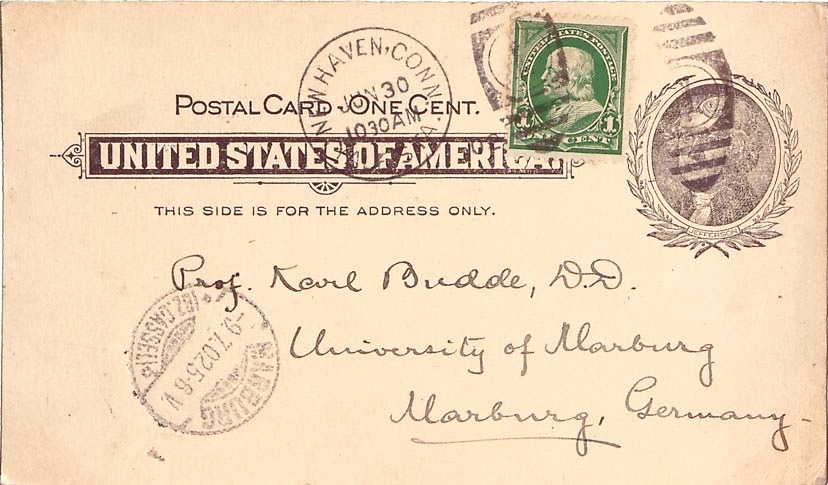 POSTAL CARD - ONE CENT.
UNITED STATES OF AMERICA.
THIS SIDE IS FOR THE ADDRESS ONLY.
NEW HAVEN, CONN.
JUN 30
1030 AM
STA.
UNITED STATES POSTAGE
1 1
ONE CENT
JEFFERSON
Prof. Karl Budde, D.D.
University of Marburg
Marburg, Germany-
MARBURG
(BZ. CASSEL)
-9.7.02.5-6 V